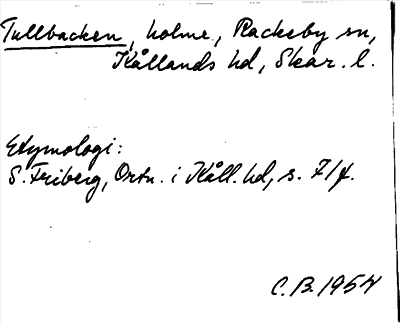 Tullbacken, holme, Rackeby sn,
Kållands hd, Skar. l.
Etymologi:
S. Friberg, Ortn. i Kåll. hd, s. 71 f.
C. B. 1954